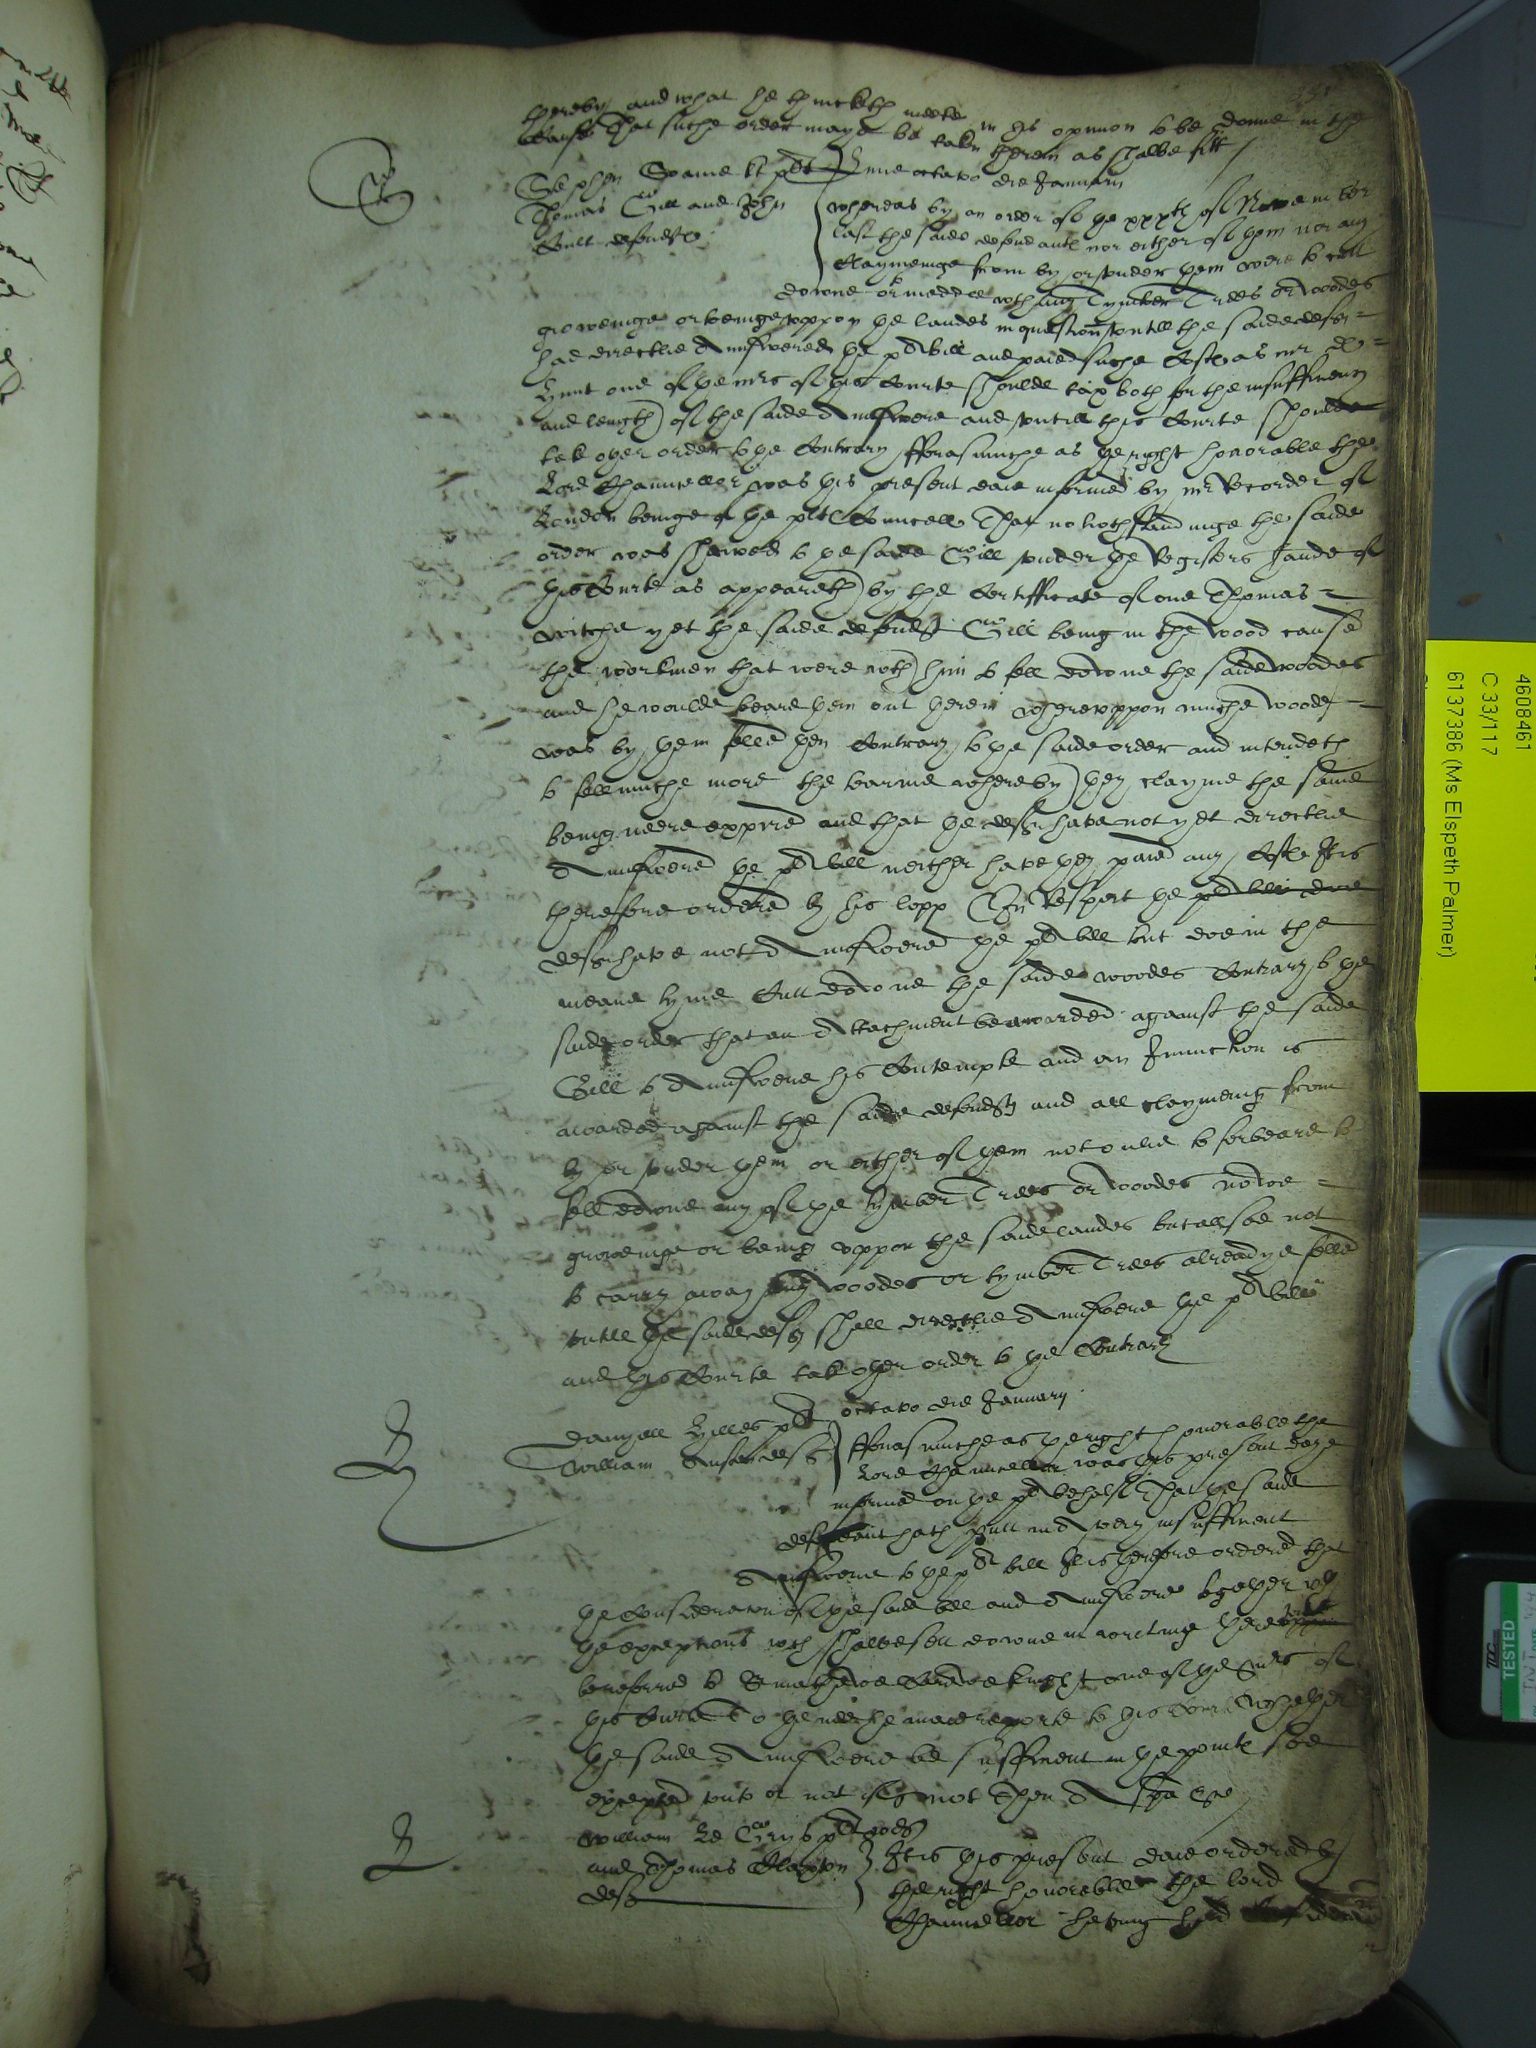 thereby and what he thincketh meete in his opinion to be donne in the
cause That suche order maye be taken therein as shalbe fitt
Stephen Soame kt plt
Thomas Gill and John
defendtes
Lune octavo die Januarii
whereas by an order of the xxxth of November
last the saide defendantes nor either of them nor any
claymeinge from by or under them were to cutt
downe or meddle wth any Tymber Trees or woodes
groweinge or beinge uppon the landes in question untill the saide deftes
had directlie Aunswered the pltes bill and paied suche Costes as mr D
Hunt one of the mrs of this Courte shoulde tax both for the insufficiency
and length of the saide Aunswere and untill this Courte shoulde
take other order to the Contrary fforasmuche as the right honorable the
Lord Chauncellor was this present daie informed by mr Recorder of
London beinge of the pltes Councell That nothwthstandinge the saide
order was shewed to the saide Gill under the Registers hande of
this Courte as appeareth by the Certifficate of one Thomas
witche yet the saide defendt Gill being in the wood caused
the workmen that were wth him to fell downe the saide woodes
and he woulde beare them out therein whereuppon muche woode
was by them felled then Contrary to the saide order and intendeth
to fell muche more the tearme whereby they clayme the same
being neere expired and that the deftes have not yet directlie
Aunswered the pltes bill neither have they paied any Costes It is
therefore ordered by his lopp That in respect the plt bill doe
deftes have not Aunswered the pltes bill but doe in the
meane tyme Cutt downe the saide woodes Contrary to the
saide order that an Attachment be awarded against the saide
Gill to Aunswere his Contempte and an Iniunction is
awarded against the saide defendtes and all claymeing from
by or under them or either of them not onlie to forbeare to
fell downe any of the tymber Trees or woodes nowe
groweinge or being uppon the saide landes but allsoe not
to carry away any woodes or tymber Trees alreadye felled
untill the saide deftes shall directlie Aunswere the pltes bill
and this Courte take other order to the Contrary
Danyell Hilles plt
William deft
octavo die January
fforasmuche as the right honorable the
Lord Chauncellor was this present daye
informed on the pltes behalf That the saide
defendant hath putt in A very insufficient
Aunswere to the pltes bill It is therefore ordered that
the Consideracion of the saide bill and Aunswere together wth
the exceptions wch shalbe sett downe in writinge thereunto
be referred to Sr mathewe Carewe knight one of the mrs of
this Courte To the ende he make reporte to this Courte Whether
the saide Aunswere be sufficient in the pointes soe
excepted unto or not if not Then A spa &c
William Le Grys plt
and Thomas Claxton
deft
It is this present daie ordered by
the right honorable the lord
Chauncellor having